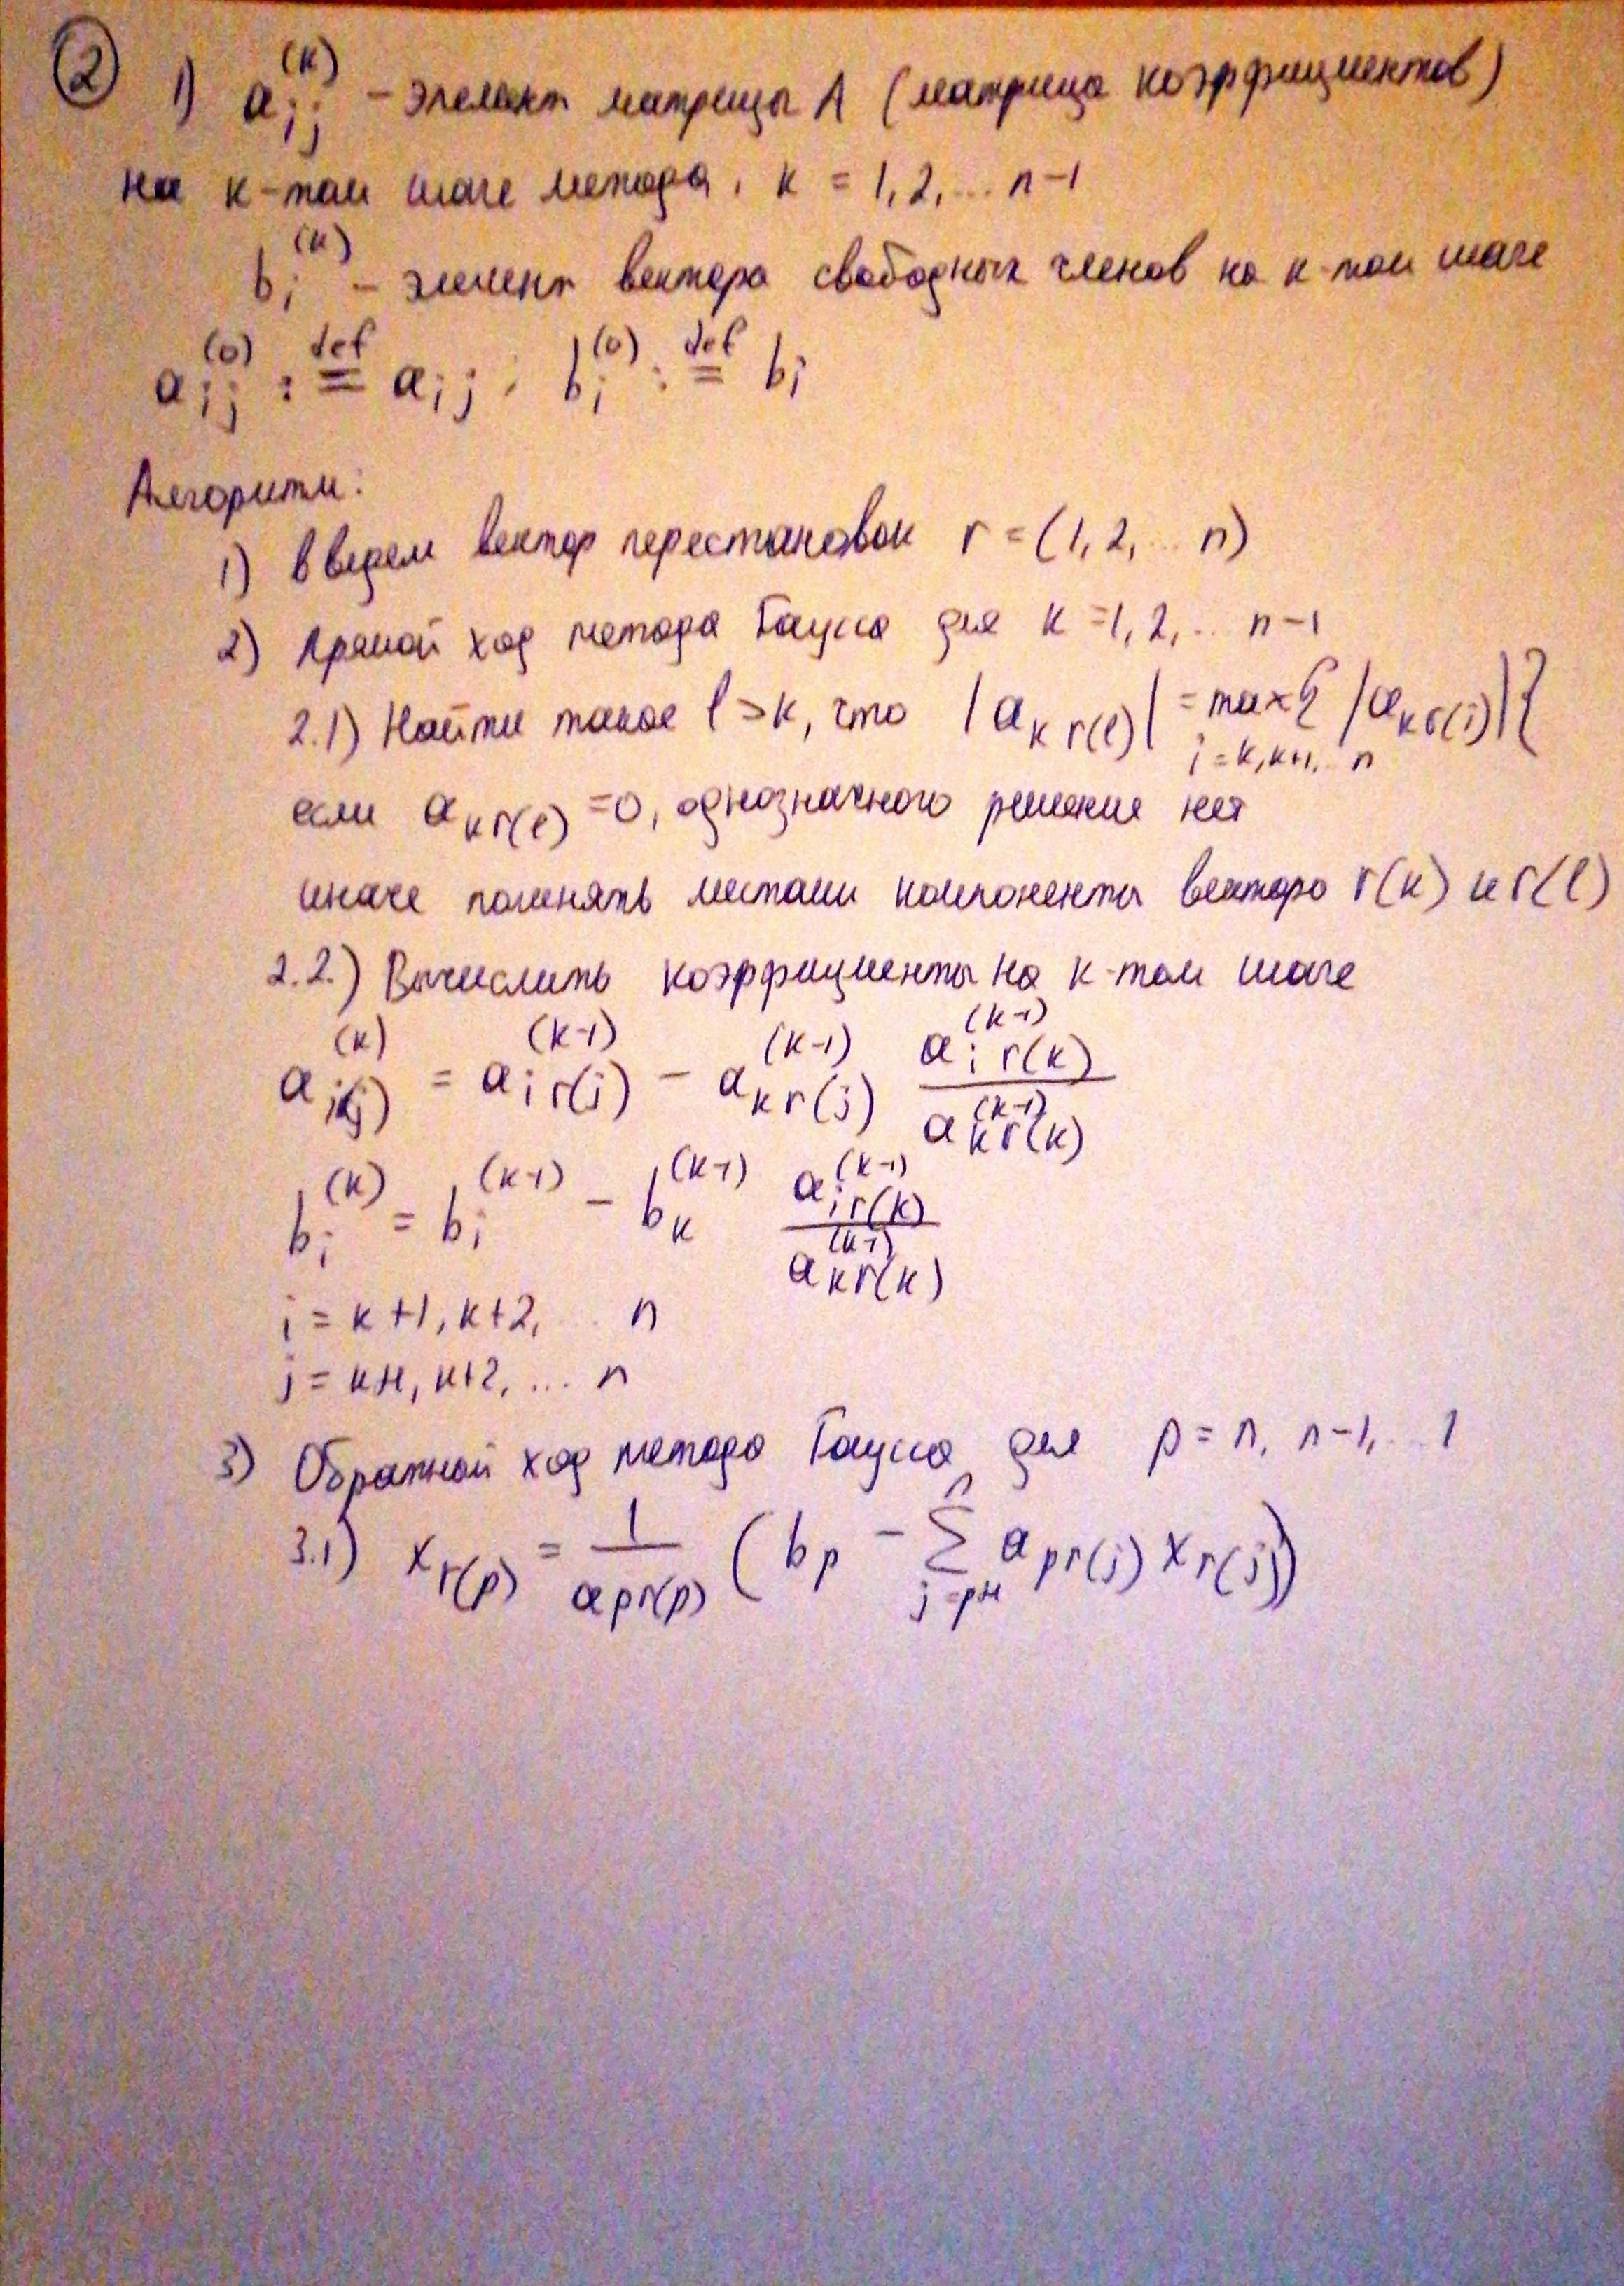 ② 1) a_{ij}^{(k)} – элемент матрицы A (матрица коэффициентов)
на k-том шаге метода, k = 1, 2, ... n-1
b_i^{(k)} – элемент вектора свободных членов на k-том шаге
a_{ij}^{(0)} :\overset{def}{=} a_{ij}; b_i^{(0)} :\overset{def}{=} b_i
Алгоритм:
1) введем вектор перестановок r = (1, 2, ... n)
2) Прямой ход метода Гаусса для k = 1, 2, ... n-1
2.1) Найти такое l ≥ k, что |a_{k r(l)}| = max_{i = k, k+1, ... n} { |a_{k r(i)}| }
если a_{k r(l)} = 0, однозначного решения нет
иначе поменять местами компоненты вектора r(k) и r(l)
2.2.) Вычислить коэффициенты на k-том шаге
a_{i(j)}^{(k)} = a_{i r(j)}^{(k-1)} - a_{k r(j)}^{(k-1)} \frac{a_{i r(k)}^{(k-1)}}{a_{k r(k)}^{(k-1)}}
b_i^{(k)} = b_i^{(k-1)} - b_k^{(k-1)} \frac{a_{i r(k)}^{(k-1)}}{a_{k r(k)}^{(k-1)}}
i = k+1, k+2, ... n
j = k+1, k+2, ... n
3) Обратный ход метода Гаусса для p = n, n-1, ... 1
3.1) x_{r(p)} = \frac{1}{a_{p r(p)}} ( b_p - \sum_{j=p+1}^{n} a_{p r(j)} x_{r(j)} )